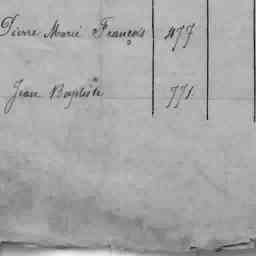 Pierre Marie François 477
Jean Baptiste 771